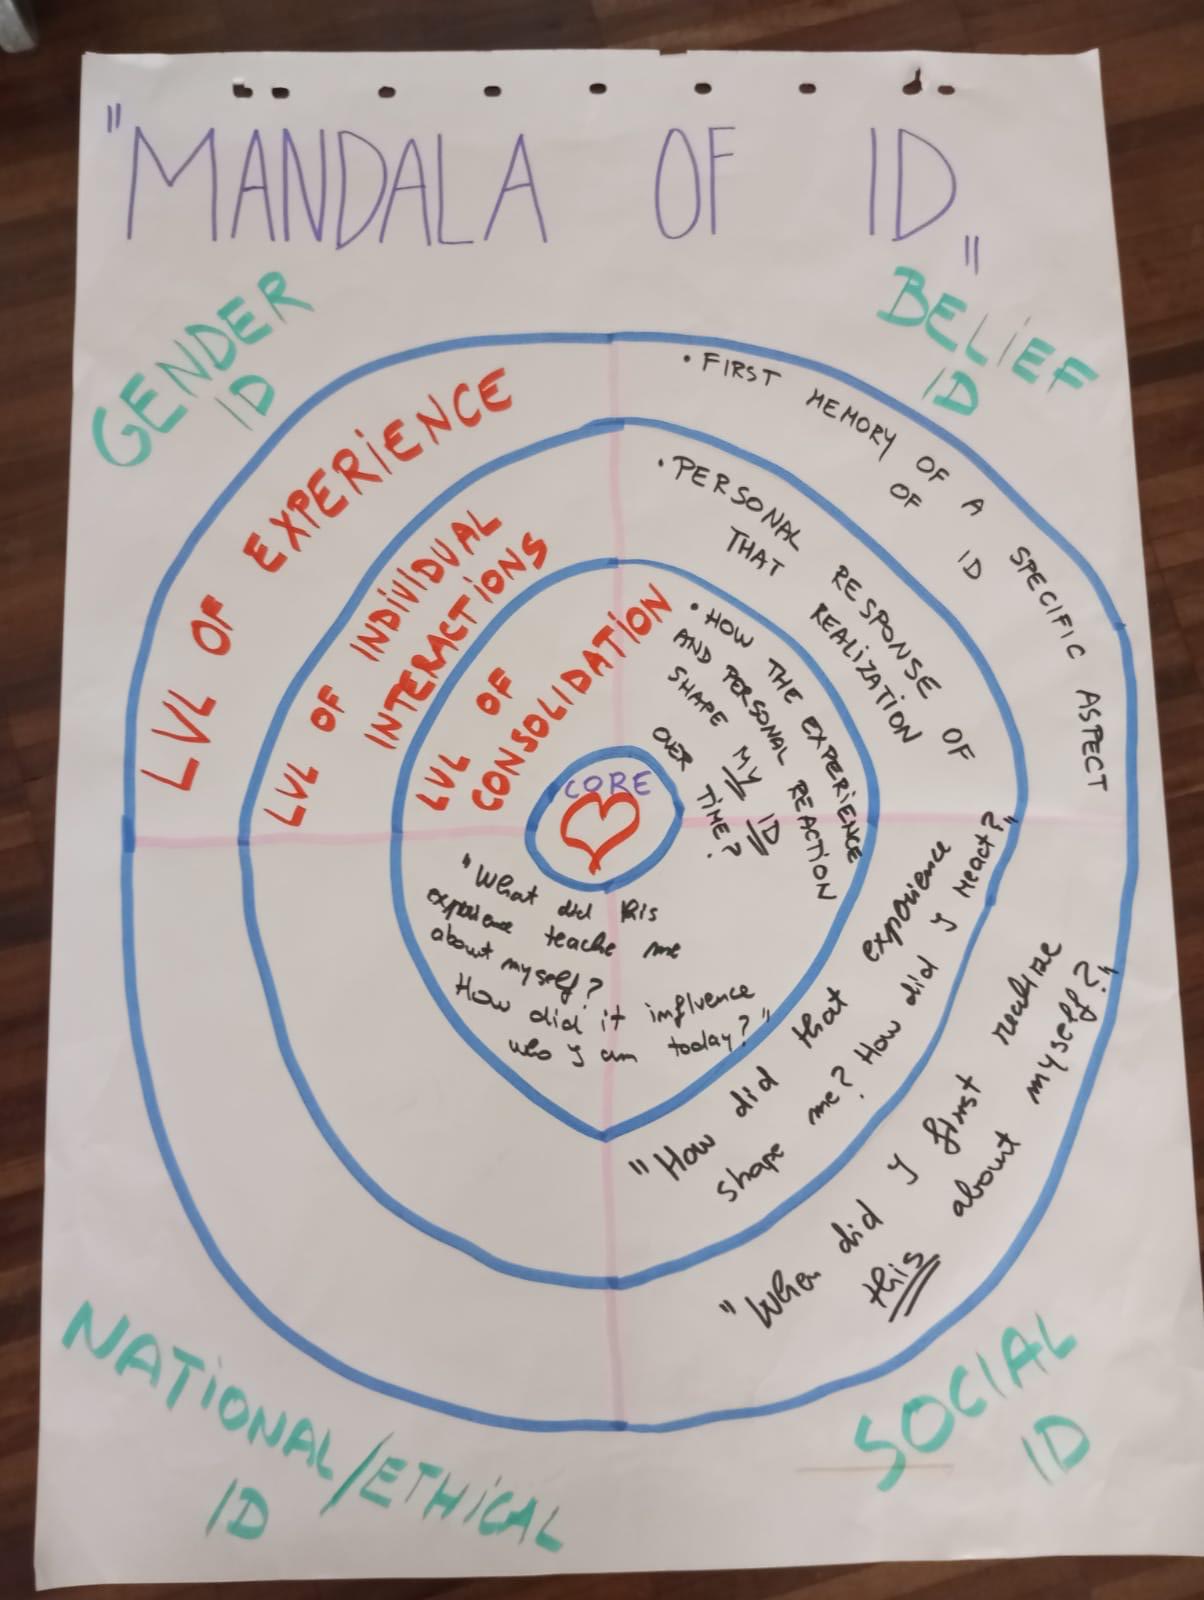 "MANDALA OF ID"
GENDER
ID
BELIEF
ID
LVL OF EXPERIENCE
LVL OF INDIVIDUAL
INTERACTIONS
LVL OF
CONSOLIDATION
• FIRST MEMORY OF A SPECIFIC ASPECT
OF ID
• PERSONAL RESPONSE OF
THAT REALIZATION
• HOW THE EXPERIENCE
AND PERSONAL REACTION
SHAPE MY ID
OVER TIME?
CORE
"What did this
experience teache me
about myself?
How did it influence
who I am today?"
"How did that experience
shape me? How did I react?"
"When did I first realize
this about myself?"
NATIONAL/ETHICAL
ID
SOCIAL
ID